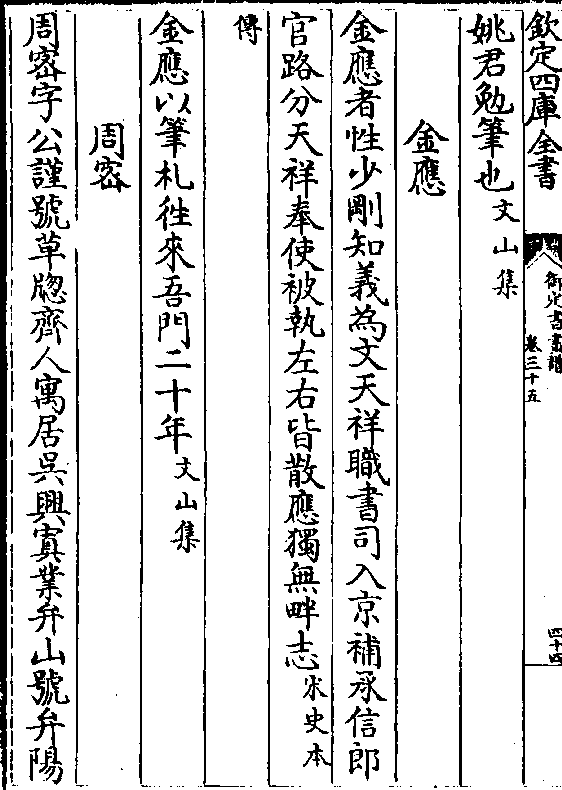 欽定四庫全書
御定書畫譜
卷三十五
四十四
姚君勉筆也文山集
金應
金應者性少剛知義為文天祥職書司入京補承信郎
官路分天祥奉使被執左右皆散應獨無畔志宋史本
傳
金應以筆札徃來吾門二十年文山集
周密
周密字公謹號草牕齊人寓居吳興寘業弁山號弁陽